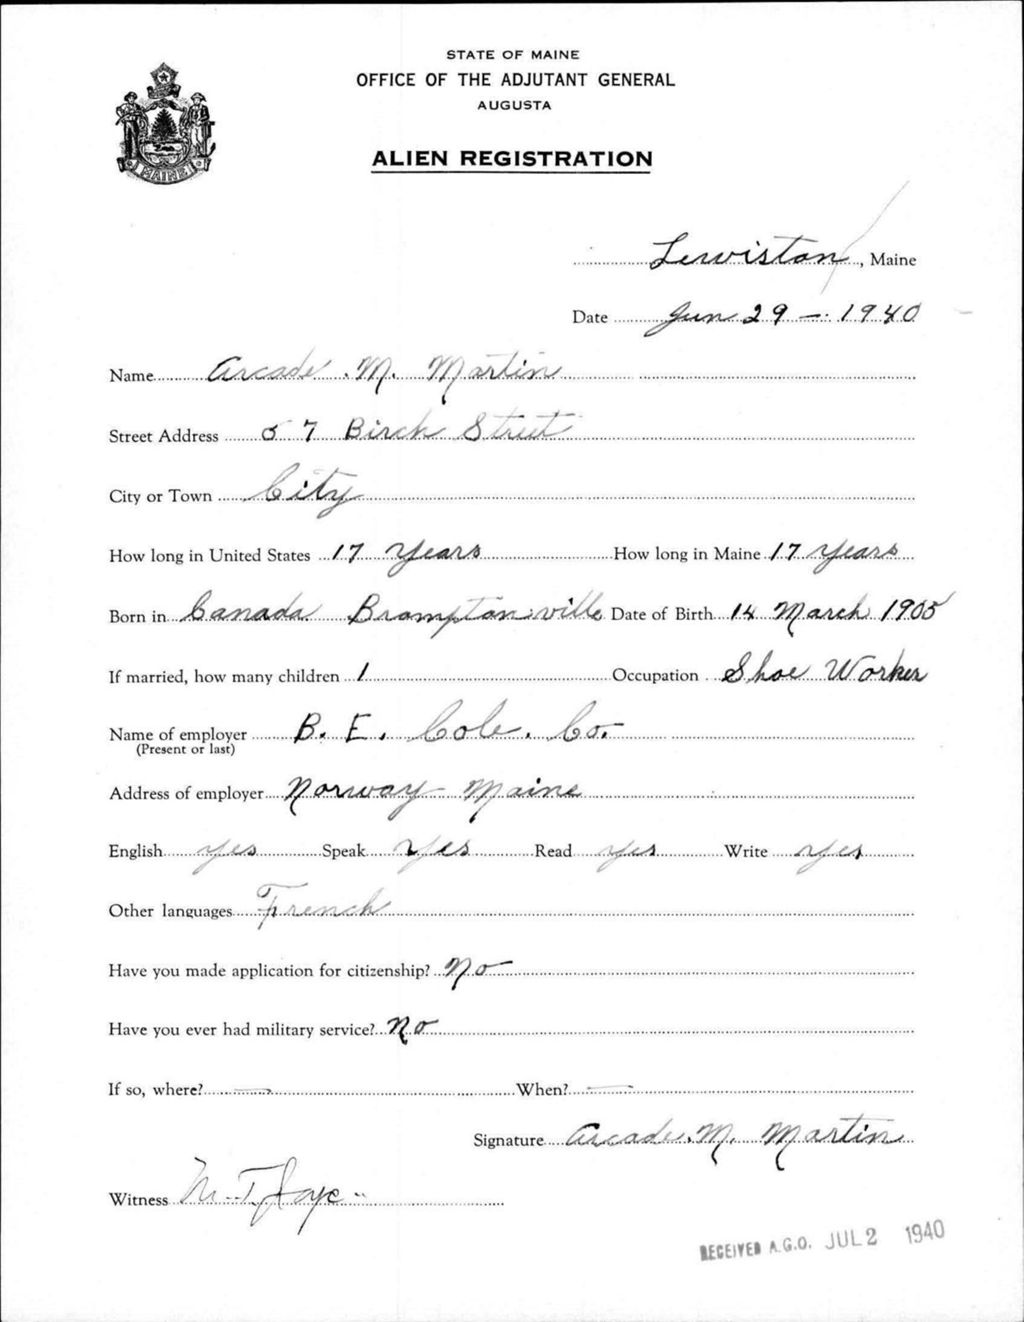 STATE OF MAINE
OFFICE OF THE ADJUTANT GENERAL
AUGUSTA
ALIEN REGISTRATION
MAINE
Lewiston, Maine
Date Jun 29 - 1940
Name Arcade M. Martin
Street Address 57 Birch Street
City or Town City
How long in United States 17 Years How long in Maine 17 years
Born in Canada Bromptonville Date of Birth 14 March 1905
If married, how many children 1 Occupation Shoe Worker
Name of employer B. E. Cole. Co.
(Present or last)
Address of employer Norway Maine
English yes Speak Yes Read yes Write yes
Other languages French
Have you made application for citizenship? No
Have you ever had military service? No
If so, where? — When? —
Signature Arcade. M. Martin
Witness M. T.
RECEIVED A.G.O. JUL 2 1940